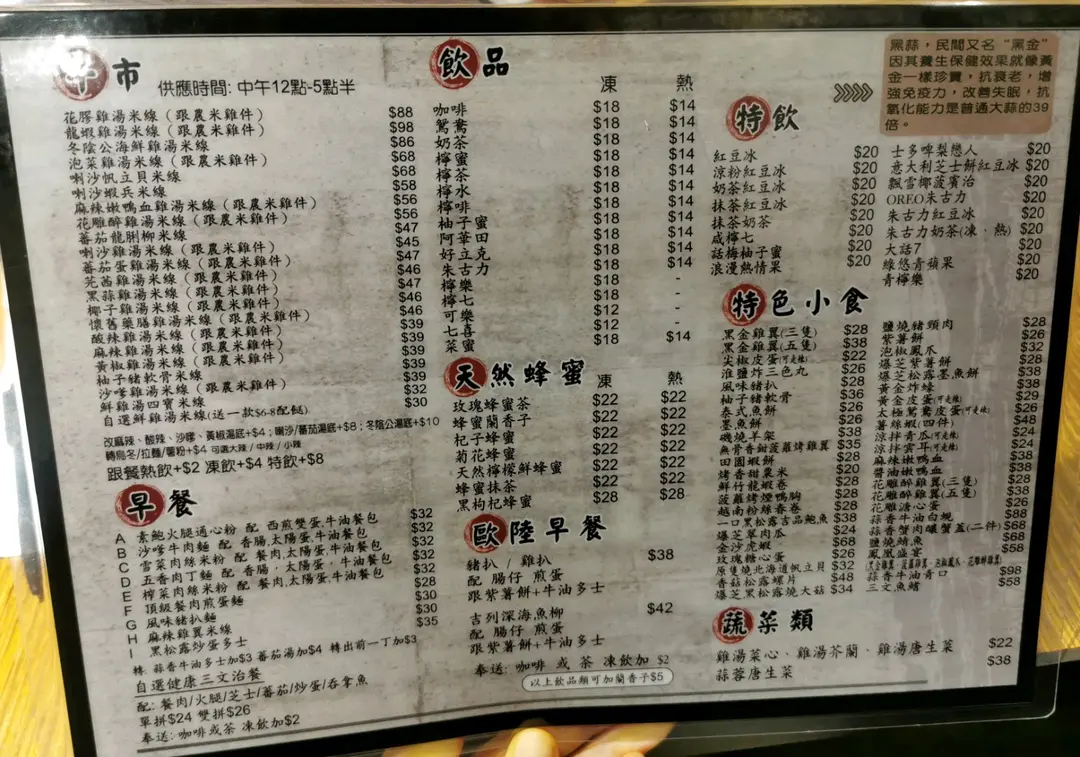 午市
供應時間: 中午12點-5點半
花膠雞湯米線 (跟農米雞件) $88
龍蝦雞湯米線 (跟農米雞件) $98
冬陰公海鮮雞湯米線 $86
泡菜雞湯米線 (跟農米雞件) $68
喇沙帆立貝米線 $68
喇沙蝦兵米線 $58
麻辣嫩鴨血雞湯米線 (跟農米雞件) $56
花雕醉雞湯米線 (跟農米雞件) $56
番茄龍脷柳米線 $47
喇沙雞湯米線 (跟農米雞件) $45
蕃茄蛋雞湯米線 (跟農米雞件) $47
芫茜雞湯米線 (跟農米雞件) $46
黑蒜雞湯米線 (跟農米雞件) $47
椰子雞湯米線 (跟農米雞件) $46
懷舊藥膳雞湯米線 (跟農米雞件) $46
酸辣雞湯米線 (跟農米雞件) $39
麻辣雞湯米線 (跟農米雞件) $39
黃椒雞湯米線 (跟農米雞件) $39
柚子豬軟骨米線 $39
沙嗲雞湯米線 (跟農米雞件) $39
鮮雞湯四寶米線 $32
自選鮮雞湯米線(送一款$6-8配餸) $30
改麻辣、酸辣、沙嗲、黃椒湯底+$4；喇沙/蕃茄湯底+$8；冬陰公湯底+$10
轉烏冬/拉麵/薯粉+$4 可選大辣 / 中辣 / 小辣
跟餐熱飲+$2 凍飲+$4 特飲+$8
早餐
A 素鮑火腿通心粉 配 西煎雙蛋,牛油餐包 $32
B 沙嗲牛肉麵 配 香腸,太陽蛋,牛油餐包 $32
C 雪菜肉絲米粉 配 餐肉,太陽蛋,牛油餐包 $32
D 五香肉丁麵 配 香腸,太陽蛋,牛油餐包 $32
E 榨菜肉絲米粉 配 餐肉,太陽蛋,牛油餐包 $32
F 頂級餐肉煎蛋麵 $28
G 風味豬扒麵 $30
H 麻辣雞翼米線 $30
I 黑松露炒蛋多士 $35
轉 蒜香牛油多士加$3 蕃茄湯加$4 轉出前一丁加$3
自選健康三文治餐
配: 餐肉/火腿/芝士/蕃茄/炒蛋/吞拿魚
單拼$24 雙拼$26
奉送: 咖啡或茶 凍飲加$2
飲品
凍 熱
咖啡 $18 $14
鴛鴦 $18 $14
奶茶 $18 $14
檸蜜 $18 $14
檸茶 $18 $14
檸水 $18 $14
檸啡 $18 $14
柚子蜜 $18 $14
阿華田 $18 $14
好立克 $18 $14
朱古力 $18 $14
檸樂 $18 -
檸七 $18 -
可樂 $12 -
七喜 $12 -
菜蜜 $18 $14
天然蜂蜜
凍 熱
玫瑰蜂蜜茶 $22 $22
蜂蜜蘭香子 $22 $22
杞子蜂蜜 $22 $22
菊花蜂蜜 $22 $22
天然檸檬鮮蜂蜜 $22 $22
蜂蜜抹茶 $22 $22
黑枸杞蜂蜜 $28 $28
歐陸早餐
豬扒 / 雞扒 $38
配 腸仔 煎蛋
跟紫薯餅+牛油多士
吉列深海魚柳 $42
配 腸仔 煎蛋
跟紫薯餅+牛油多士
奉送: 咖啡 或 茶 凍飲加 $2
以上飲品類可加蘭香子$5
黑蒜，民間又名“黑金”
因其養生保健效果就像黃
金一樣珍寶，抗衰老，增
強免疫力，改善失眠，抗
氧化能力是普通大蒜的39
倍。
特飲
紅豆冰 $20
涼粉紅豆冰 $20
奶茶紅豆冰 $20
抹茶紅豆冰 $20
抹茶奶茶 $20
咸檸七 $20
話梅柚子蜜 $20
浪漫熱情果 $20
士多啤梨戀人 $20
意大利芝士餅紅豆冰 $20
飄雪椰菠賓治 $20
OREO朱古力 $20
朱古力紅豆冰 $20
朱古力奶茶(凍、熱) $20
大話7 $20
綠悠青蘋果 $20
青檸樂 $20
特色小食
黑金雞翼(三隻) $28
黑金雞翼(五隻) $38
尖椒皮蛋(可走辣) $22
淮鹽炸三色丸 $26
風味豬扒 $28
柚子豬軟骨 $36
泰式魚餅 $26
墨魚餅 $28
磯燒羊架 $38
無骨香甜菠蘿烤雞翼 $35
田園蝦餅 $28
烤香甜粟米 $20
鮮竹龍蝦卷 $28
菠蘿烤煙鴨胸 $28
越南粉絲春卷 $28
一口黑松露古品鮑魚 $38
爆芝翠肉瓜 $24
金沙虎蝦 $68
玫瑰糖心蛋 $26
原隻燒北海道帆立貝 $32
香菇松露螺片 $48
爆芝黑松露燒大菇 $34
鹽燒豬頸肉 $28
紫薯餅 $26
泡椒鳳爪 $32
爆芝紫薯餅 $28
爆芝松露墨魚餅 $38
黃金炸蠔 $38
黃金皮蛋(可走辣) $29
太極鴛鴦皮蛋(可走辣) $26
薯絲蝦(四件) $48
涼拌青瓜(可走辣) $24
涼拌雲耳(可走辣) $24
麻辣嫩鴨血 $38
醬油嫩鴨血 $38
花雕醉雞翼(三隻) $28
花雕醉雞翼(五隻) $38
花雕溏心蛋 $26
蒜香牛油白蜆 $88
蒜香蟹肉釀蟹蓋(二件) $68
鹽燒鯖魚 $68
鳳凰盛宴 $58
蒜香牛油青口 $98
三文魚鰭 $58
蔬菜類
雞湯菜心、雞湯芥蘭、雞湯唐生菜 $22
蒜蓉唐生菜 $38